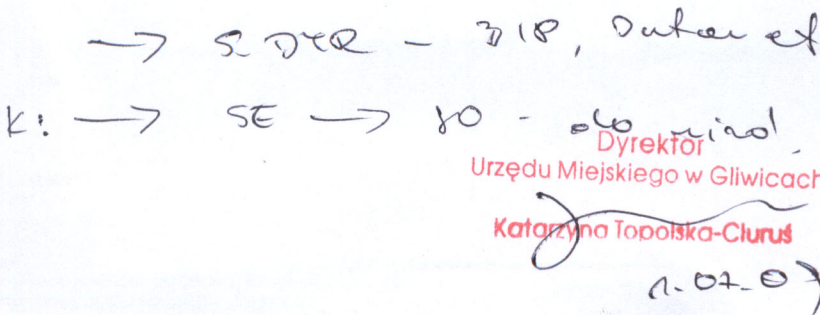 → S. DYR - BIP,
K: → SE → - do wiad.
Dyrektor
Urzędu Miejskiego w Gliwicach
Katarzyna Topolska-Ciuruś
1.07.07